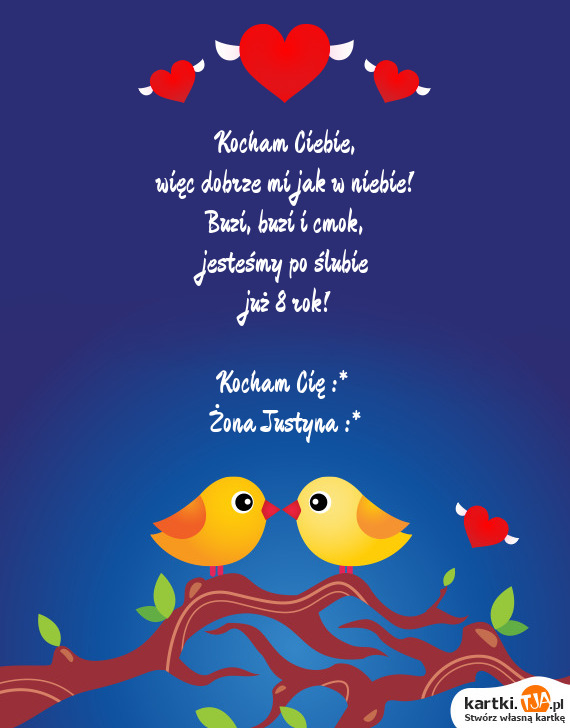 Kocham Ciebie,
więc dobrze mi jak w niebie!
Buzi, buzi i cmok,
jesteśmy po ślubie
już 8 rok!
Kocham Cię :*
Żona Justyna :*
kartki.TJA.pl
Stwórz własną kartkę